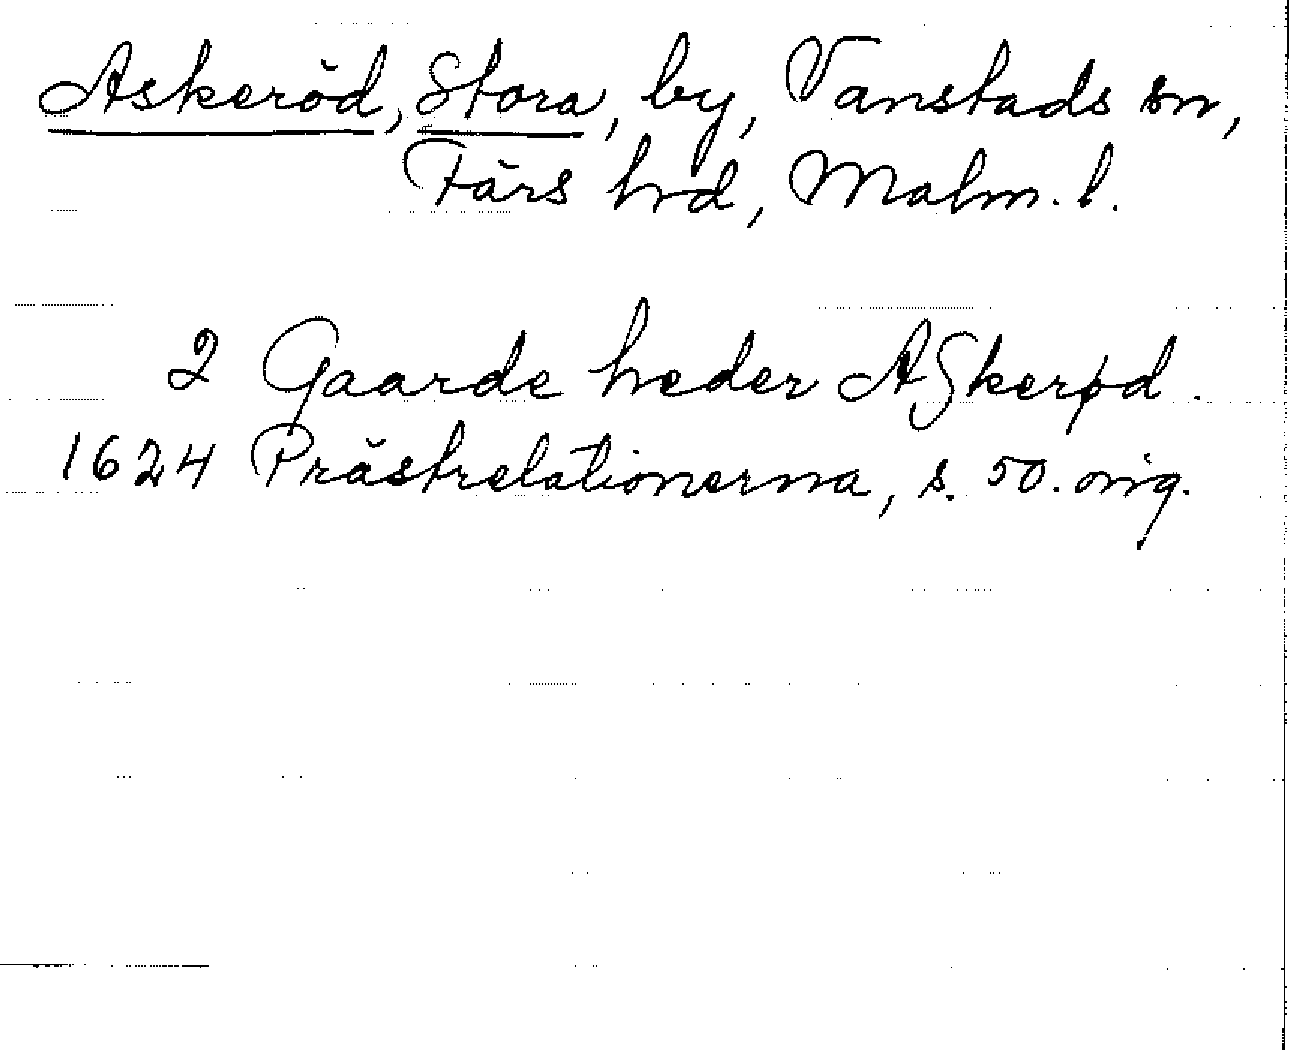 Askeröd, Stora, by, Vanstads sn,
Färs hd, Malm. l.
2 Gaarde heder ASkerød.
1624 Prästrelationerna, s. 50. orig.